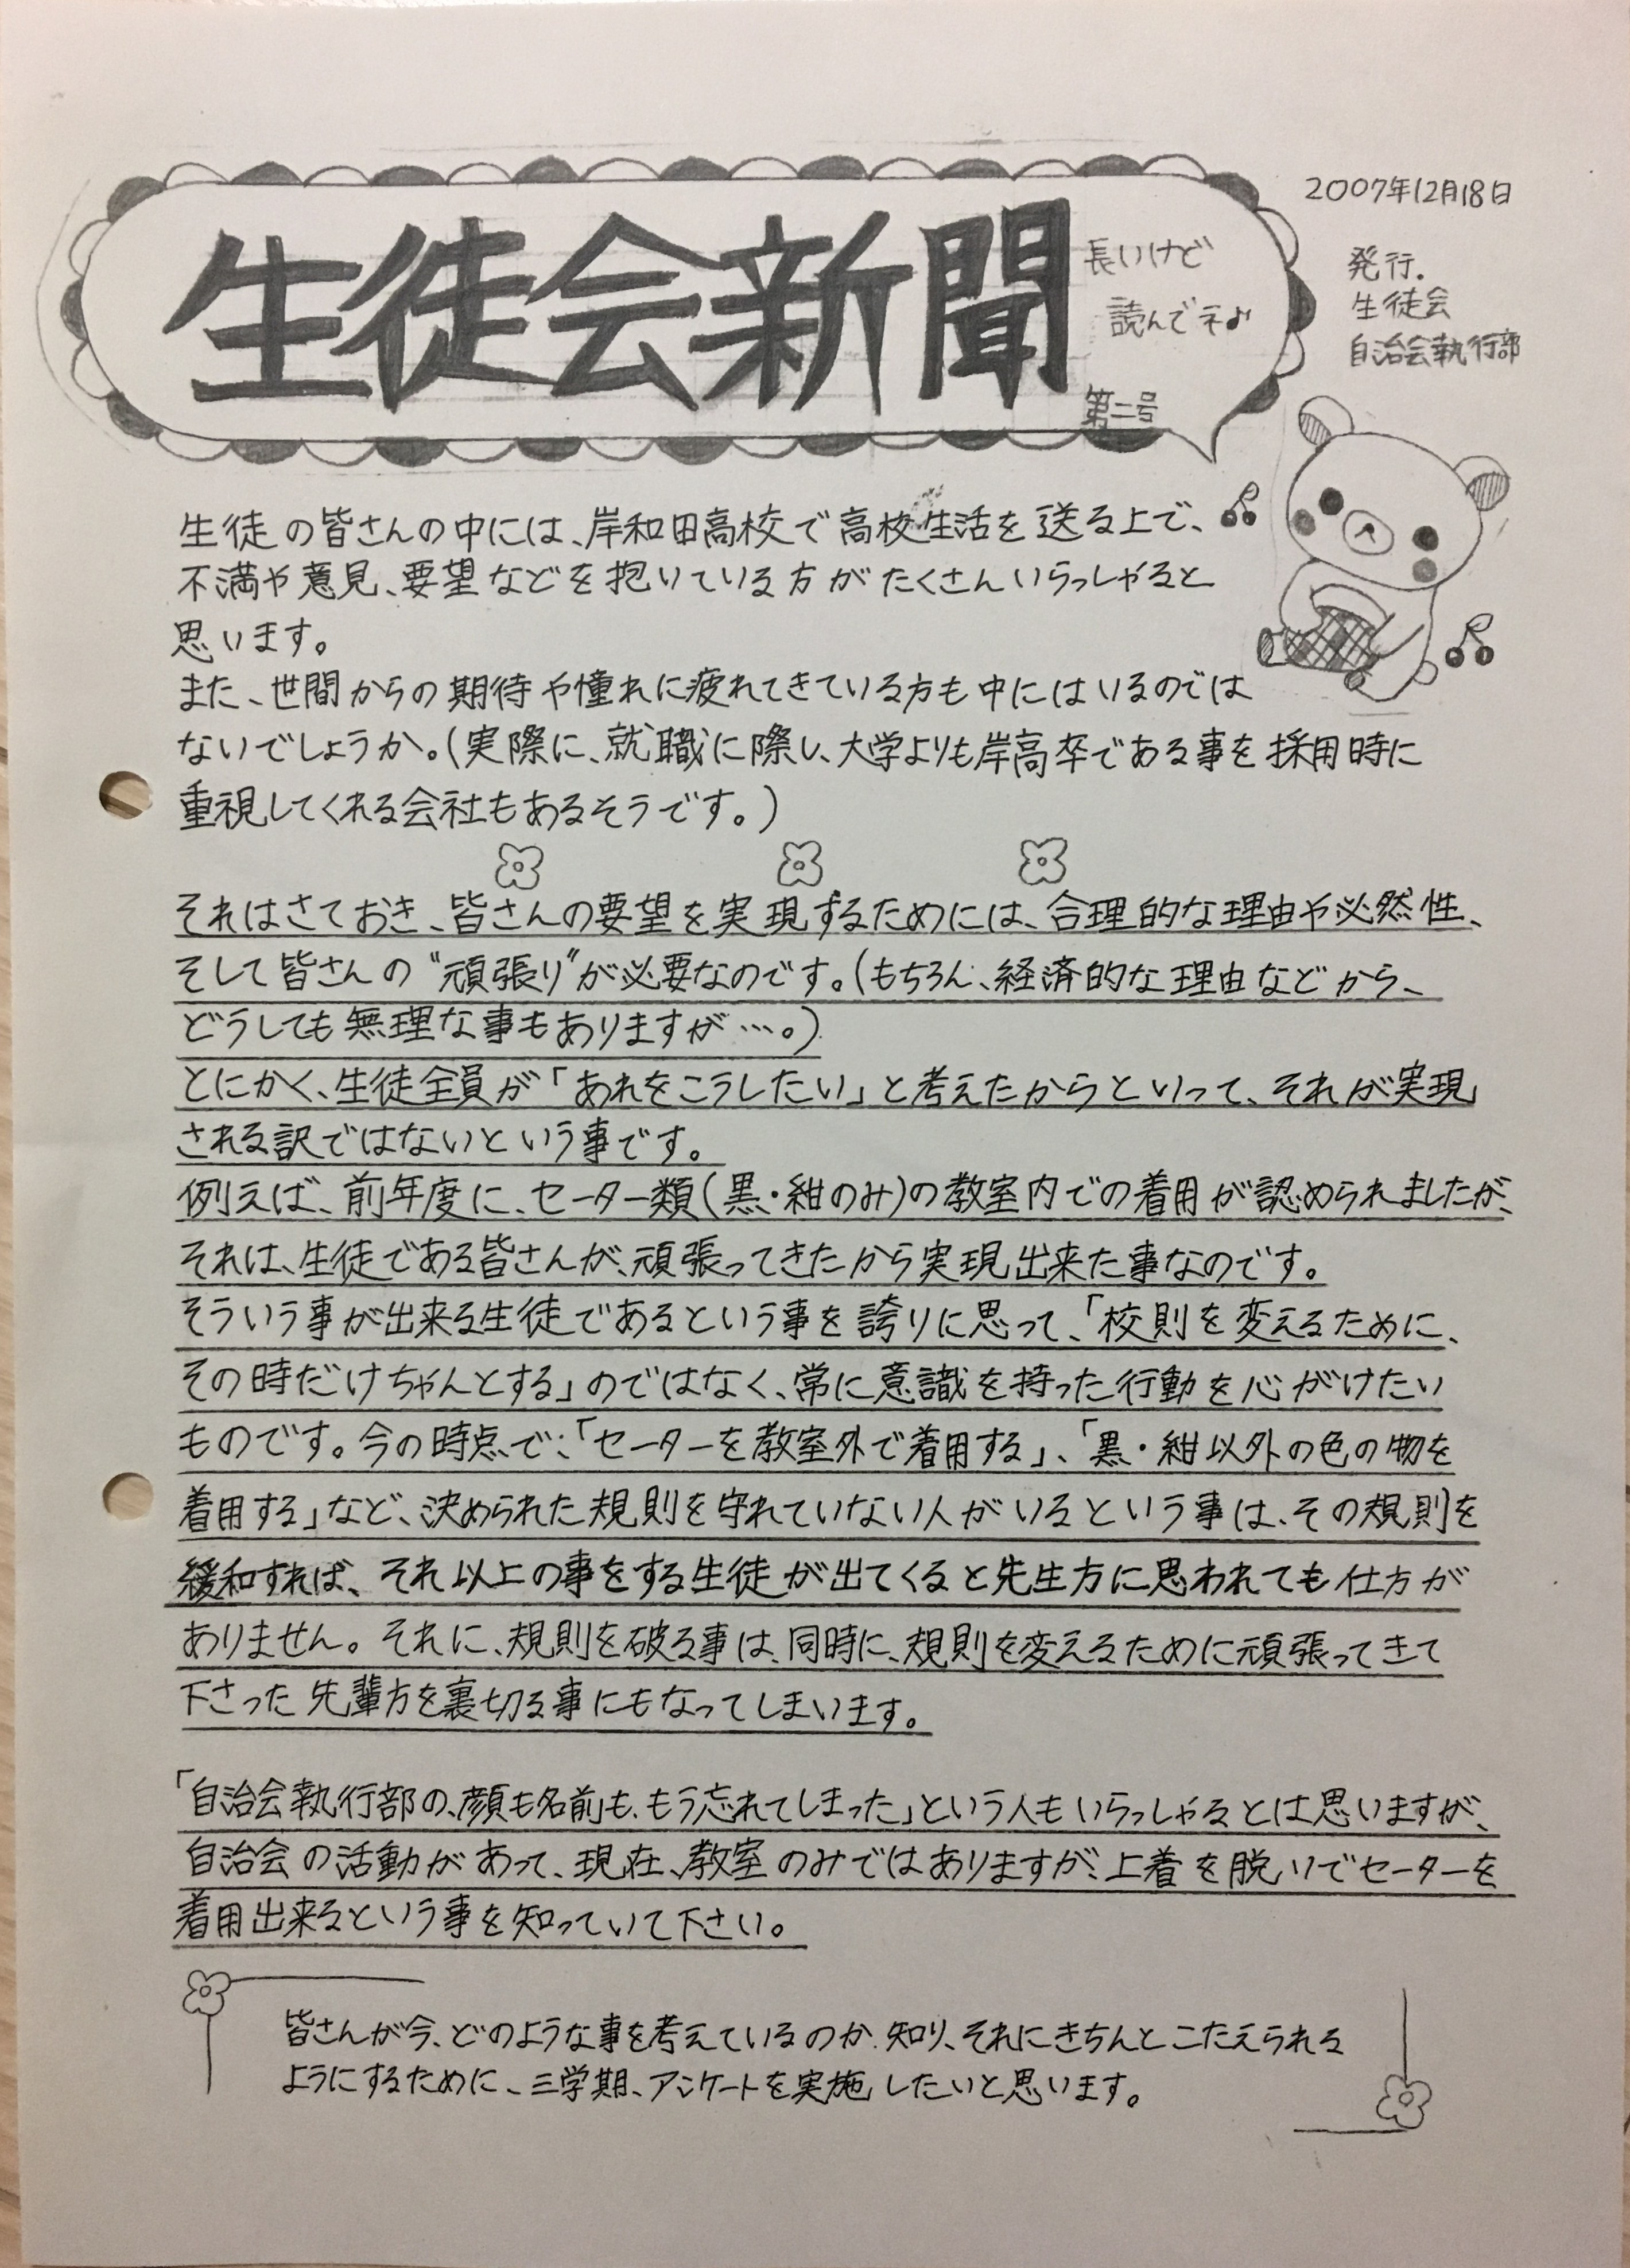 2007年12月18日
生徒会新聞
長いけど
読んでネ♪
第二号
発行.
生徒会
自治会執行部
生徒の皆さんの中には、岸和田高校で高校生活を送る上で、
不満や意見、要望などを抱いている方がたくさんいらっしゃると
思います。
また、世間からの期待や憧れに疲れてきている方も中にはいるのでは
ないでしょうか。(実際に、就職に際し、大学よりも岸高卒である事を採用時に
重視してくれる会社もあるそうです。)
それはさておき、皆さんの要望を実現するためには、合理的な理由や必然性、
そして皆さんの“頑張り”が必要なのです。(もちろん、経済的な理由などから、
どうしても無理な事もありますが…。)
とにかく、生徒全員が「あれをこうしたい」と考えたからといって、それが実現
される訳ではないという事です。
例えば、前年度に、セーター類(黒・紺のみ)の教室内での着用が認められましたが、
それは、生徒である皆さんが、頑張ってきたから実現出来た事なのです。
そういう事が出来る生徒であるという事を誇りに思って、「校則を変えるために、
その時だけちゃんとする」のではなく、常に意識を持った行動を心がけたい
ものです。今の時点で、「セーターを教室外で着用する」、「黒・紺以外の色の物を
着用する」など、決められた規則を守れていない人がいるという事は、その規則を
緩和すれば、それ以上の事をする生徒が出てくると先生方に思われても仕方が
ありません。それに、規則を破る事は、同時に、規則を変えるために頑張ってきて
下さった先輩方を裏切る事にもなってしまいます。
「自治会執行部の、顔も名前も、もう忘れてしまった」という人もいらっしゃるとは思いますが、
自治会の活動があって、現在、教室のみではありますが、上着を脱いでセーターを
着用出来るという事を知っていて下さい。
皆さんが今、どのような事を考えているのか、知り、それにきちんとこたえられる
ようにするために、三学期、アンケートを実施したいと思います。